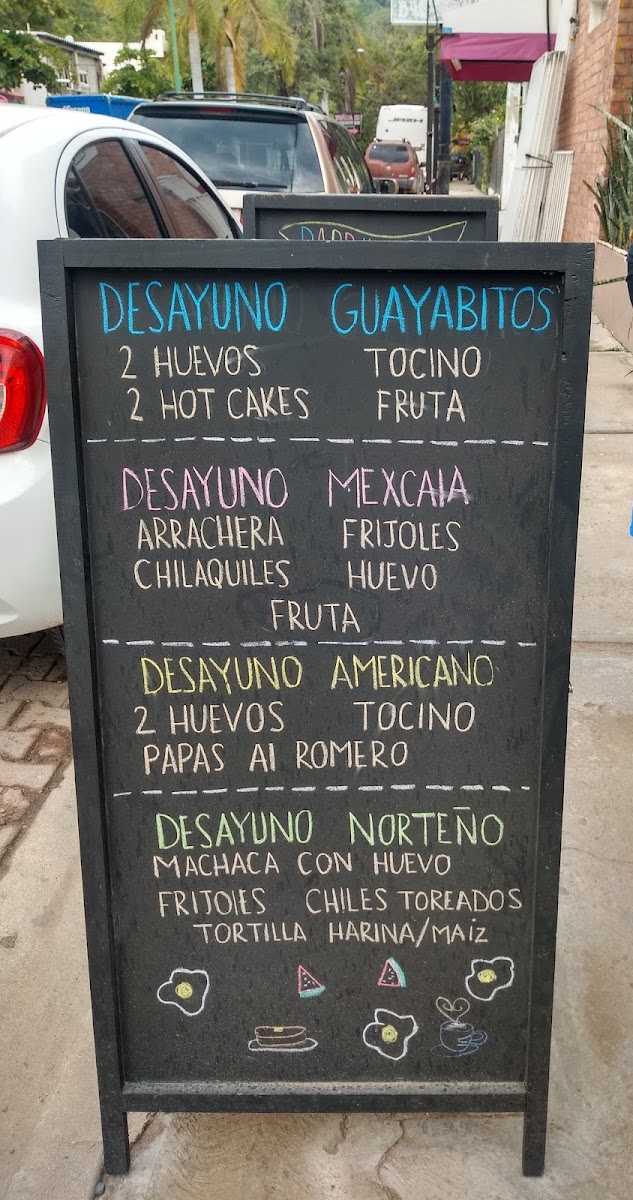 DESAYUNO GUAYABITOS
2 HUEVOS TOCINO
2 HOT CAKES FRUTA
DESAYUNO MEXCAIA
ARRACHERA FRIJOLES
CHILAQUILES HUEVO
FRUTA
DESAYUNO AMERICANO
2 HUEVOS TOCINO
PAPAS Al ROMERO
DESAYUNO NORTEÑO
MACHACA CON HUEVO
FRIJOlES CHILES TOREADOS
TORTILLA HARINA/MAíZ